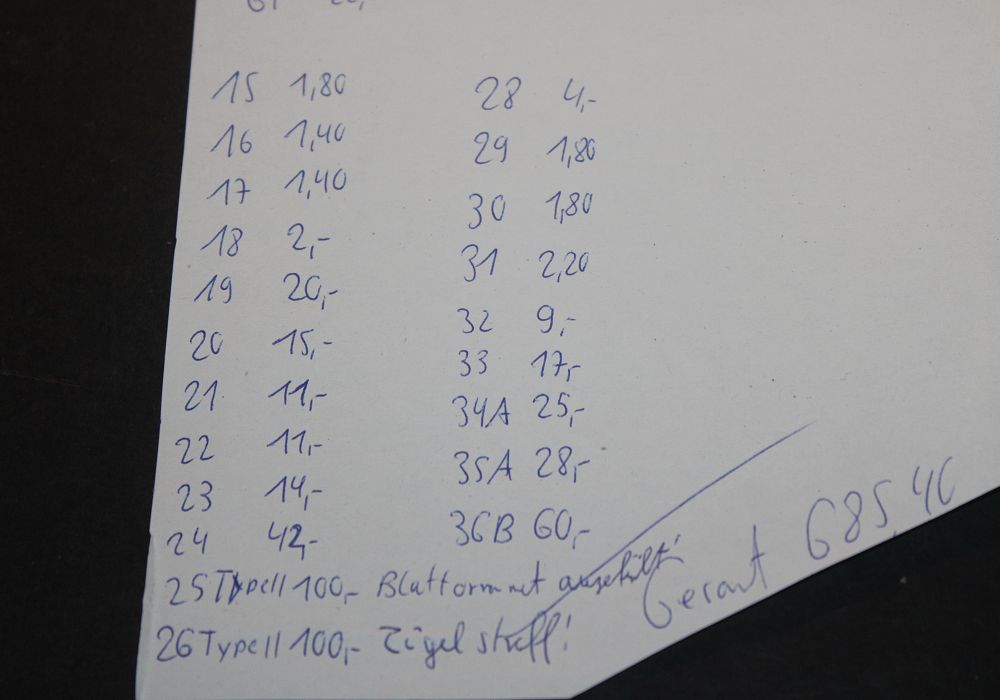 15 1,80
16 1,40
17 1,40
18 2,-
19 20,-
20 15,-
21 11,-
22 11,-
23 14,-
24 42,-
25 Type II 100,- Blattform mit
26 Type II 100,- Zügel straff!
28 4,-
29 1,80
30 1,80
31 2,20
32 9,-
33 17,-
34A 25,-
35A 28,-
36B 60,-
Gesamt 685,40